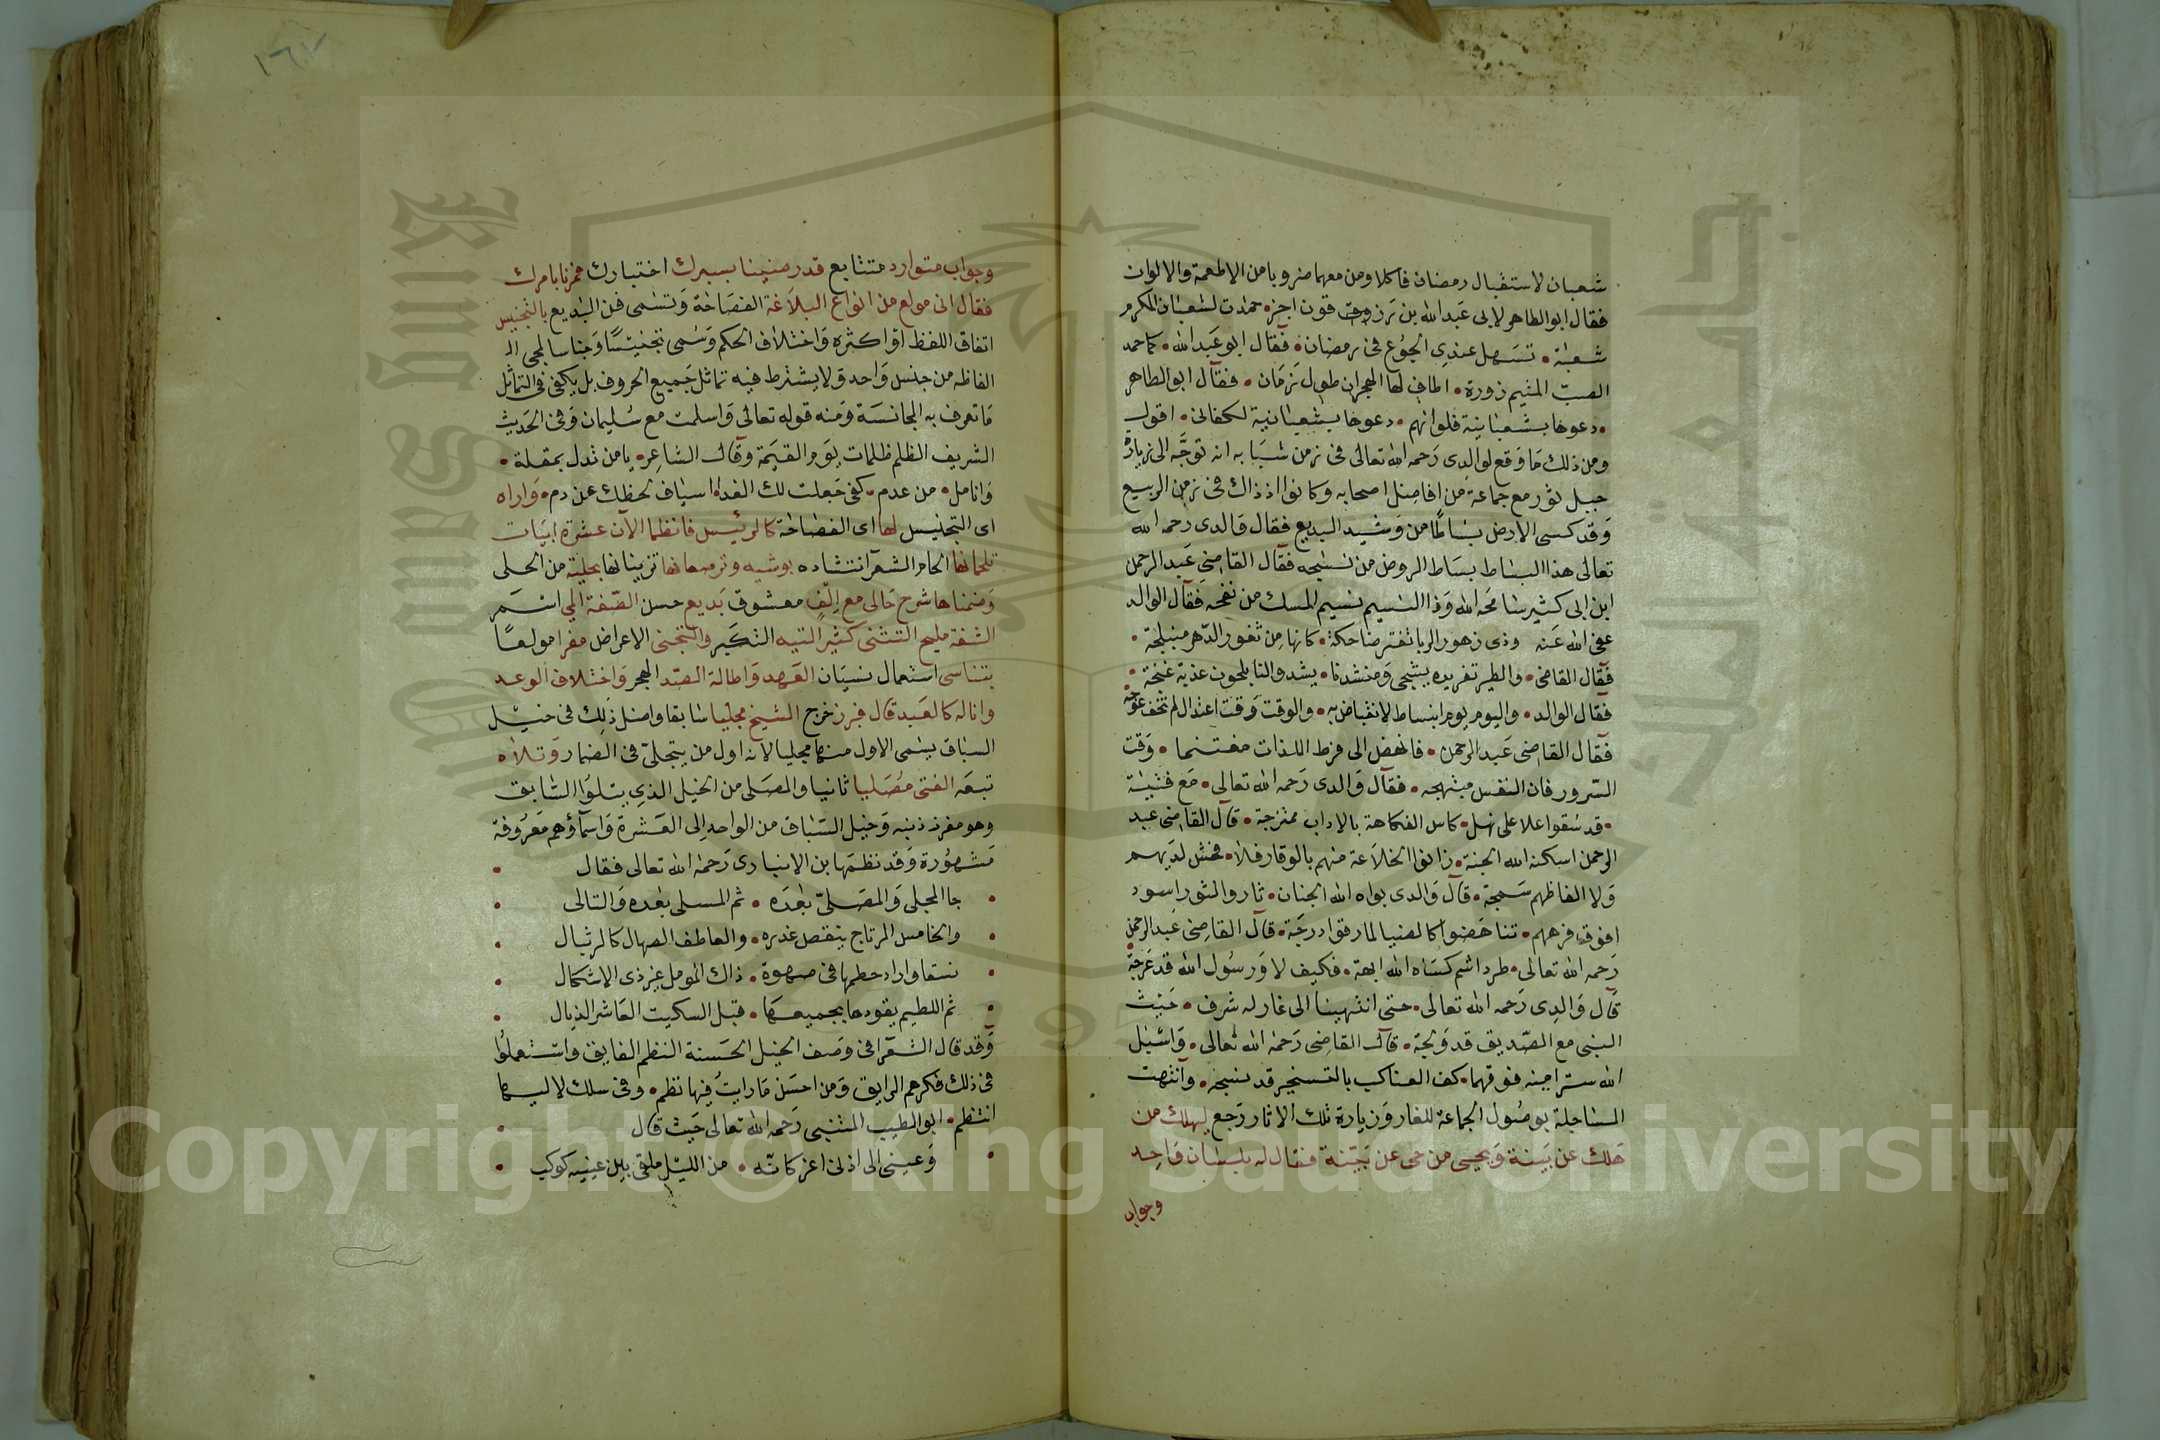 شعبان لاستقبال رمضان فاكلا ومن معهما ضروبا من الاطعمة والالوان
فقال ابو الطاهر لابى عبد الله بن اجز حمدت لشعبان المكرم
شعبه تسهل عندى الجوع فى رمضان فقال ابو عبد الله كما حمد
الصب المتيم زورة اطاف لها الهجران طول زمان فقال ابو الطاهر
دعوها بشعبانية فلو انهم دعوها بشبعانية لكفانى اقول
ومن ذلك ما وقع لوالدى رحمه الله تعالى فى زمن شبابه انه توجه الى زيارة
جبل ثور مع جماعة من افاضل اصحابه وكانوا اذ ذاك فى زمن الربيع
وقد كسى الارض بساطا من وشيه البديع فقال والدى رحمه الله
تعالى هذا البساط بساط الروض من نسيجه فقال القاضى عبد الرحمن
ابن ابى كثير سامحه الله وذا النسيم نسيم المسك من نفحه فقال الوالد
عفى الله عنه وذى زهور الربا تفتر ضاحكة كانها من ثغور الدهر مبتلجة
فقال القاضى والطير تغريده يشجى ومنشدنا يشدو لنا بلحون عذبة غنجة
فقال الوالد واليوم يوم انبساط لا انقباض به والوقت وقت اعتدال لم تخف عوجه
فقال القاضى عبد الرحمن فانهض الى فرط اللذات مغتنما وقت
السرور فان النفس مبتهجه فقال والدى رحمه الله تعالى مع فتية
قد سقوا علا على نهل كاس الفكاهة بالاداب ممتزجة قال القاضى عبد
الرحمن اسكنه الله الجنة زانوا الخلاعة منهم بالوقار فلا فحش لديهم
ولا الفاظهم سمجة قال والدى بواه الله الجنان ثاروا لثور اسود
افوق فرهم تناهضوا كالضيا لما رقوا درجة قال القاضى عبد الرحمن
رحمه الله تعالى طرد اشم كساه الله ابهة فكيف لا ورسول الله قد عرجه
قال والدى رحمه الله تعالى حتى انتهينا الى غار له شرف حيث
النبى مع الصديق قد ولجه قال القاضى رحمه الله تعالى واسبل
الله سترا منه فوقهما كف العناكب بالتسخير قد نسجه وانتهت
المساجلة بوصول الجماعة للغار وزيارة تلك الاثار رجع ليهلك من
هلك عن بينة ويحيى من حى عن بينة فقال له بلسان واحد
وجواب
١٦٧
وجواب متوارد متتابع قد رضينا بسبرك اختبارك فمرنا بامرك
فقال انى مولع من انواع البلاغة الفصاحة وتسمى فن البديع بالتجنيس
اتفاق اللفظ او اكثره واختلاف الحكم وسمى تجنيسا وجناسا لمجى ال
الفاظه من جنس واحد ولا يشترط فيه تماثل جميع الحروف بل يكفى فى التماثل
ما تعرف به المجانسة ومنه قوله تعالى واسلمت مع سليمان وفى الحديث
الشريف الظلم ظلمات يوم القيمة وقال الشاعر يا من تدل بمقلة
وانامل من عدم كفى جعلت لك الفدا اسياف لحظك عن دم واراه
اى التجنيس لها اى الفصاحة كالرئيس فانظما الآن عشرة ابيات
تلحمانها الحام الشعر انشاده بوشيه وترصعانها تزينانها بحلية من الحلى
وضمناها شرح حالى مع الف معشوق بديع حسن الصفة المى اسمر
الشفة مليح التثنى كثير التيه التكبر والتجنى الاعراض مغرا مولعا
بتناسى استعمال نسيان العهد واطالة الصد الهجر واختلاف الوعد
وانا له كالعبد قال فبرز خرج الشيخ مجليا سابقا واصل ذلك فى خيل
السباق يسمى الاول منها مجليا لانه اول من يتجلى فى الضمار وتلاه
تبعه الفتى مصليا ثانيا والمصلى من الخيل الذى يتلوا السابق
وهو مغرز ذنبه وخيل السباق من الواحد الى العشرة واسماؤهم معروفة
مشهورة وقد نظمها ابن الانبارى رحمه الله تعالى فقال
جا المجلى والمصلى بعده ثم المسلى بعده والتالى
والخامس المرتاح ينقص غدره والعاطف الصهال كالرئبال
وارد حطمها فى صهوة ذاك المومل غير ذى الاشكال
ثم اللطيم يقودها بجميعها قبل السكيت العاشر الذيال
وقد قال الشعرا فى وصف الخيل الحسنة النظم الفايق واستعملوا
فى ذلك فكرهم الرايق ومن احسن ما رايت فيها نظم وفى سلك لاليها
انتظم ابو الطيب المتنبى رحمه الله تعالى حيث قال
وعينى الى اذنى اغر كانه من الليل ملقى بين عينيه كوكب
Copyright © King Saud University
King Saud University
1957